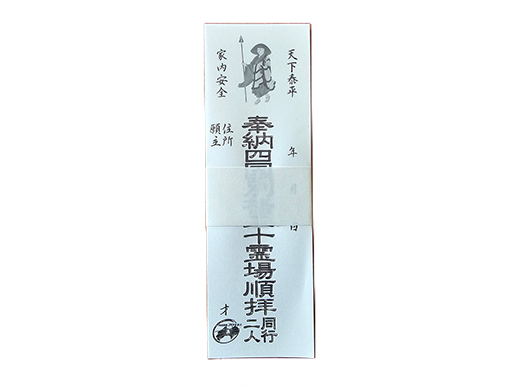 天下泰平
年 月 日
奉納四国
十霊場順拝
同行
二人
家内安全
住所
願主
才